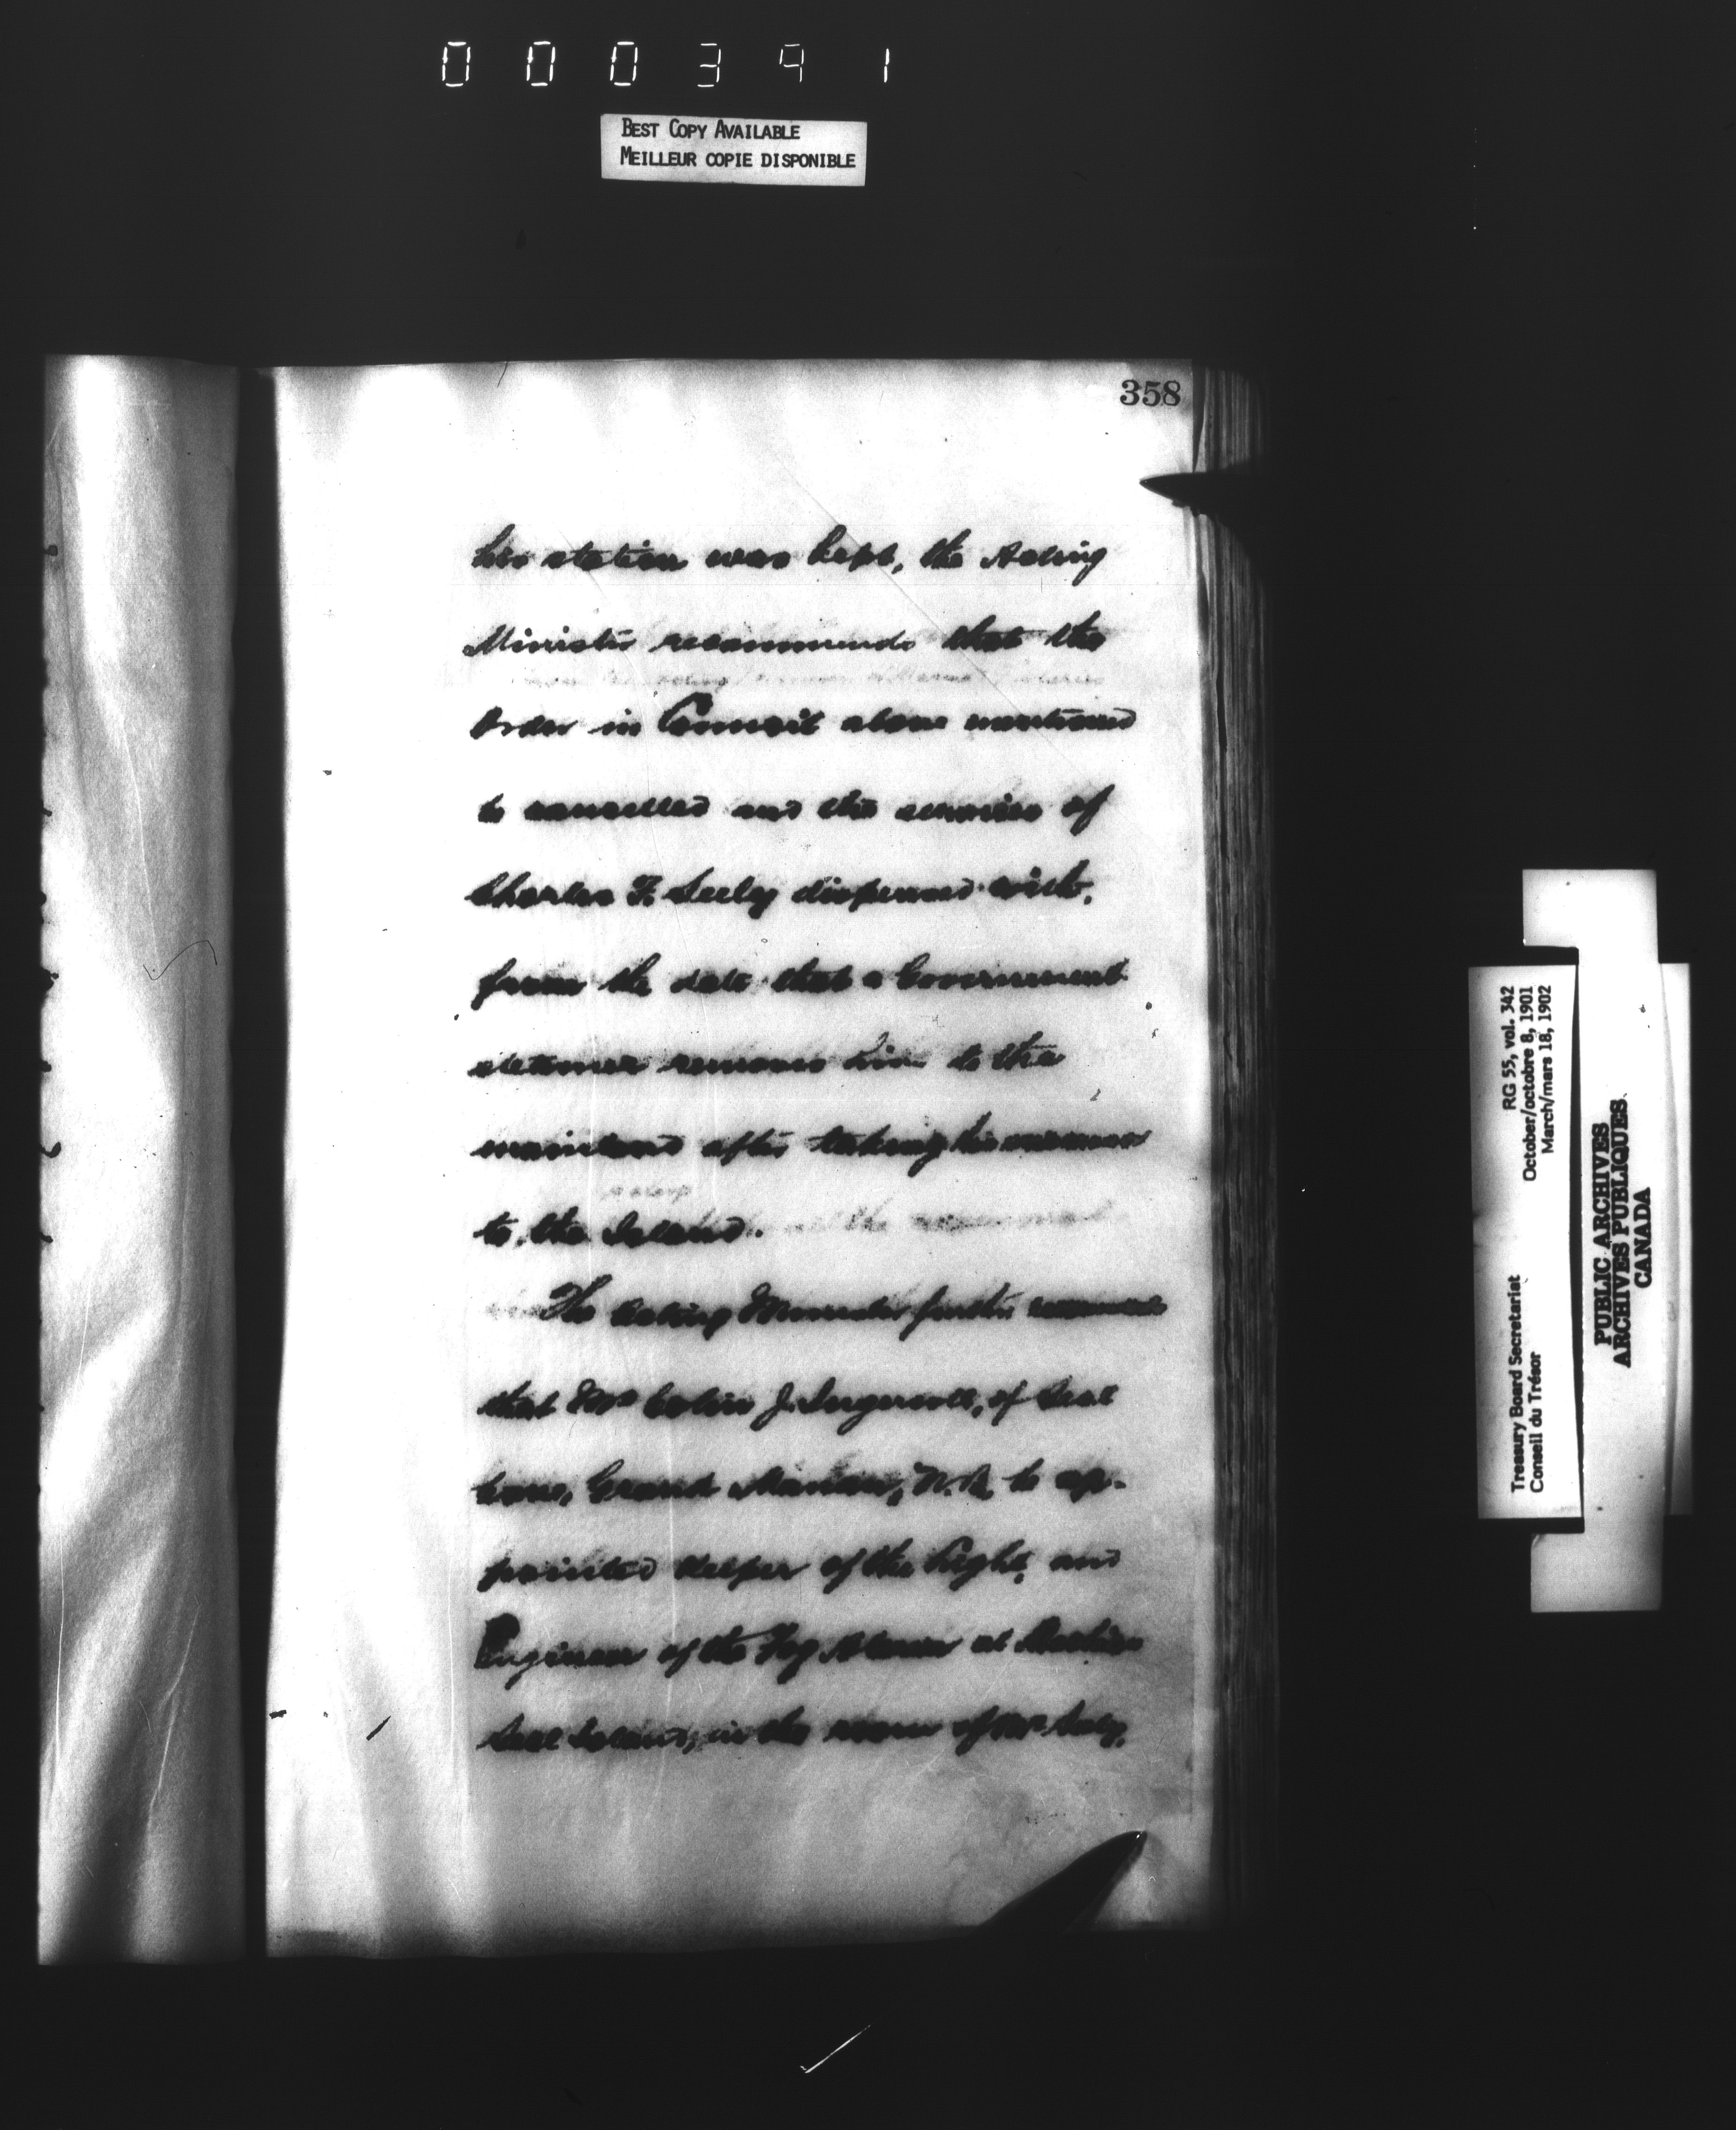 000391
BEST COPY AVAILABLE
MEILLEUR COPIE DISPONIBLE
358
his station was kept, the Acting
Minister recommends that the
Order in Council above mentioned
be cancelled and the services of
Charles F. Seely dispensed with,
from the date that a Government
steamer removes him to the
mainland after taking his successor
to the Island.
The Acting Minister further recommends
that Mr Colin J. Ingersoll, of Seal
Cove, Grand Manan, N.B. be ap-
pointed Keeper of the Light, and
Engineer of the Fog Alarm at Machias
Seal Island, in the room of Mr Seely.
RG 55, vol. 342
October/octobre 8, 1901
March/mars 18, 1902
Treasury Board Secretariat
Conseil du Trésor
PUBLIC ARCHIVES
ARCHIVES PUBLIQUES
CANADA